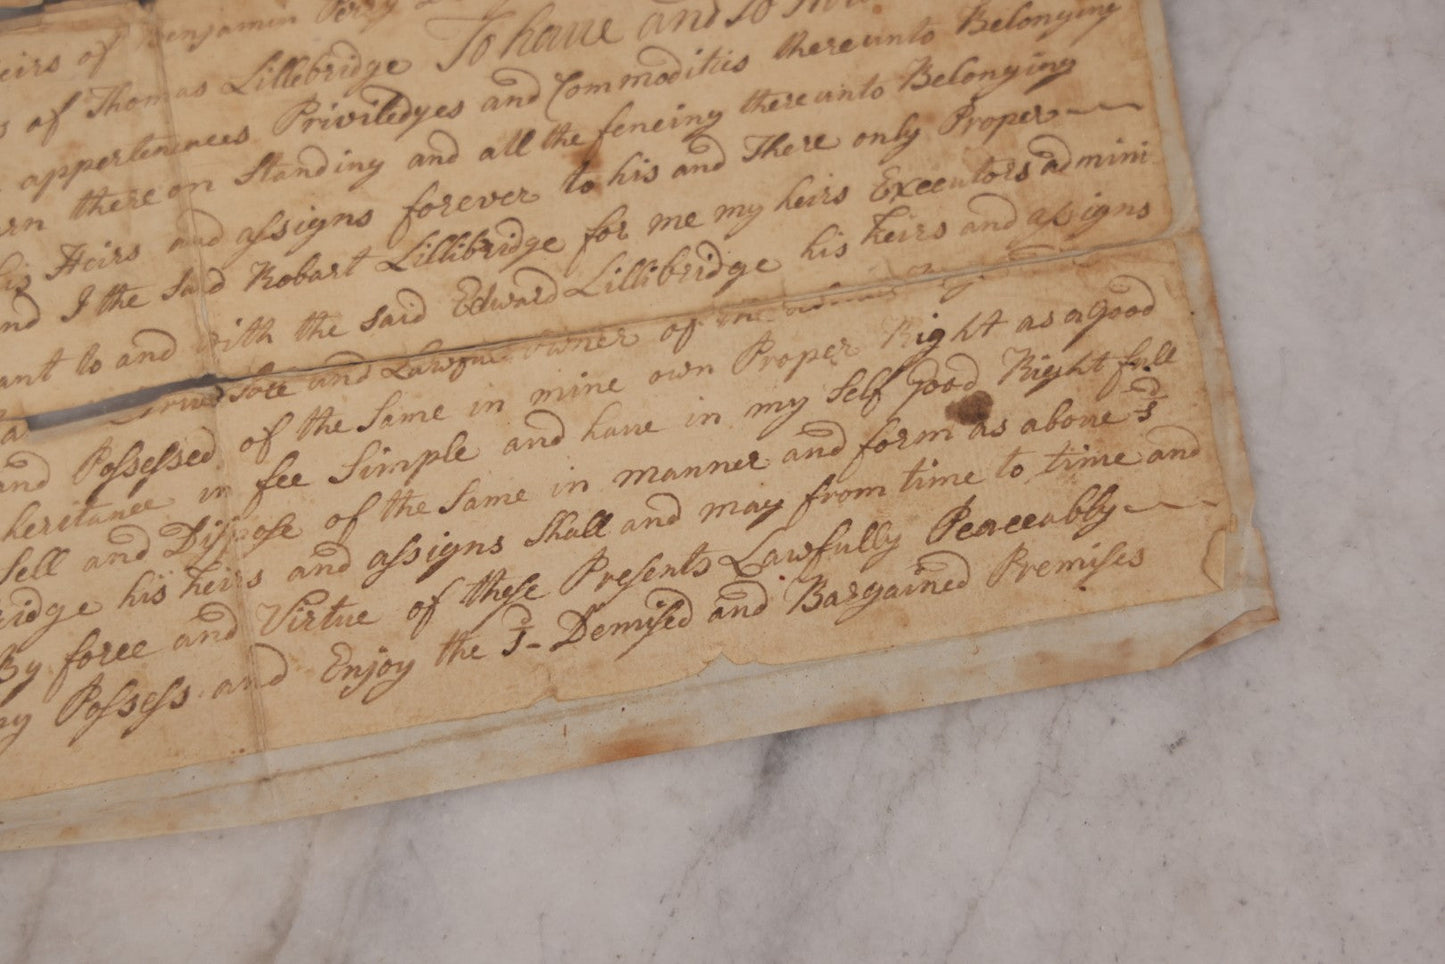 eirs of Benjamin Perry
of Thomas Lillebridge To have and to
appertenences Priviledges and Commodities there unto Belonging
arn there on Standing and all the fencing there unto Belonging
his Heirs and assigns forever to his and There only Proper
and I the said Robart Lillibridge for me my heirs Executors admini
ant to and with the said Edward Lillibridge his heirs and assigns
and Lawful owner of
and Possessed of the same in mine own Proper Right as a Good
heritance in fee Simple and have in my Self Good Right full
Sell and Dispose of the Same in manner and form as above sd
ridge his heirs and assigns Shall and may from time to time and
By force and Virtue of these Presents Lawfully Peaceably
Possess and Enjoy the sd Demised and Bargained Premises